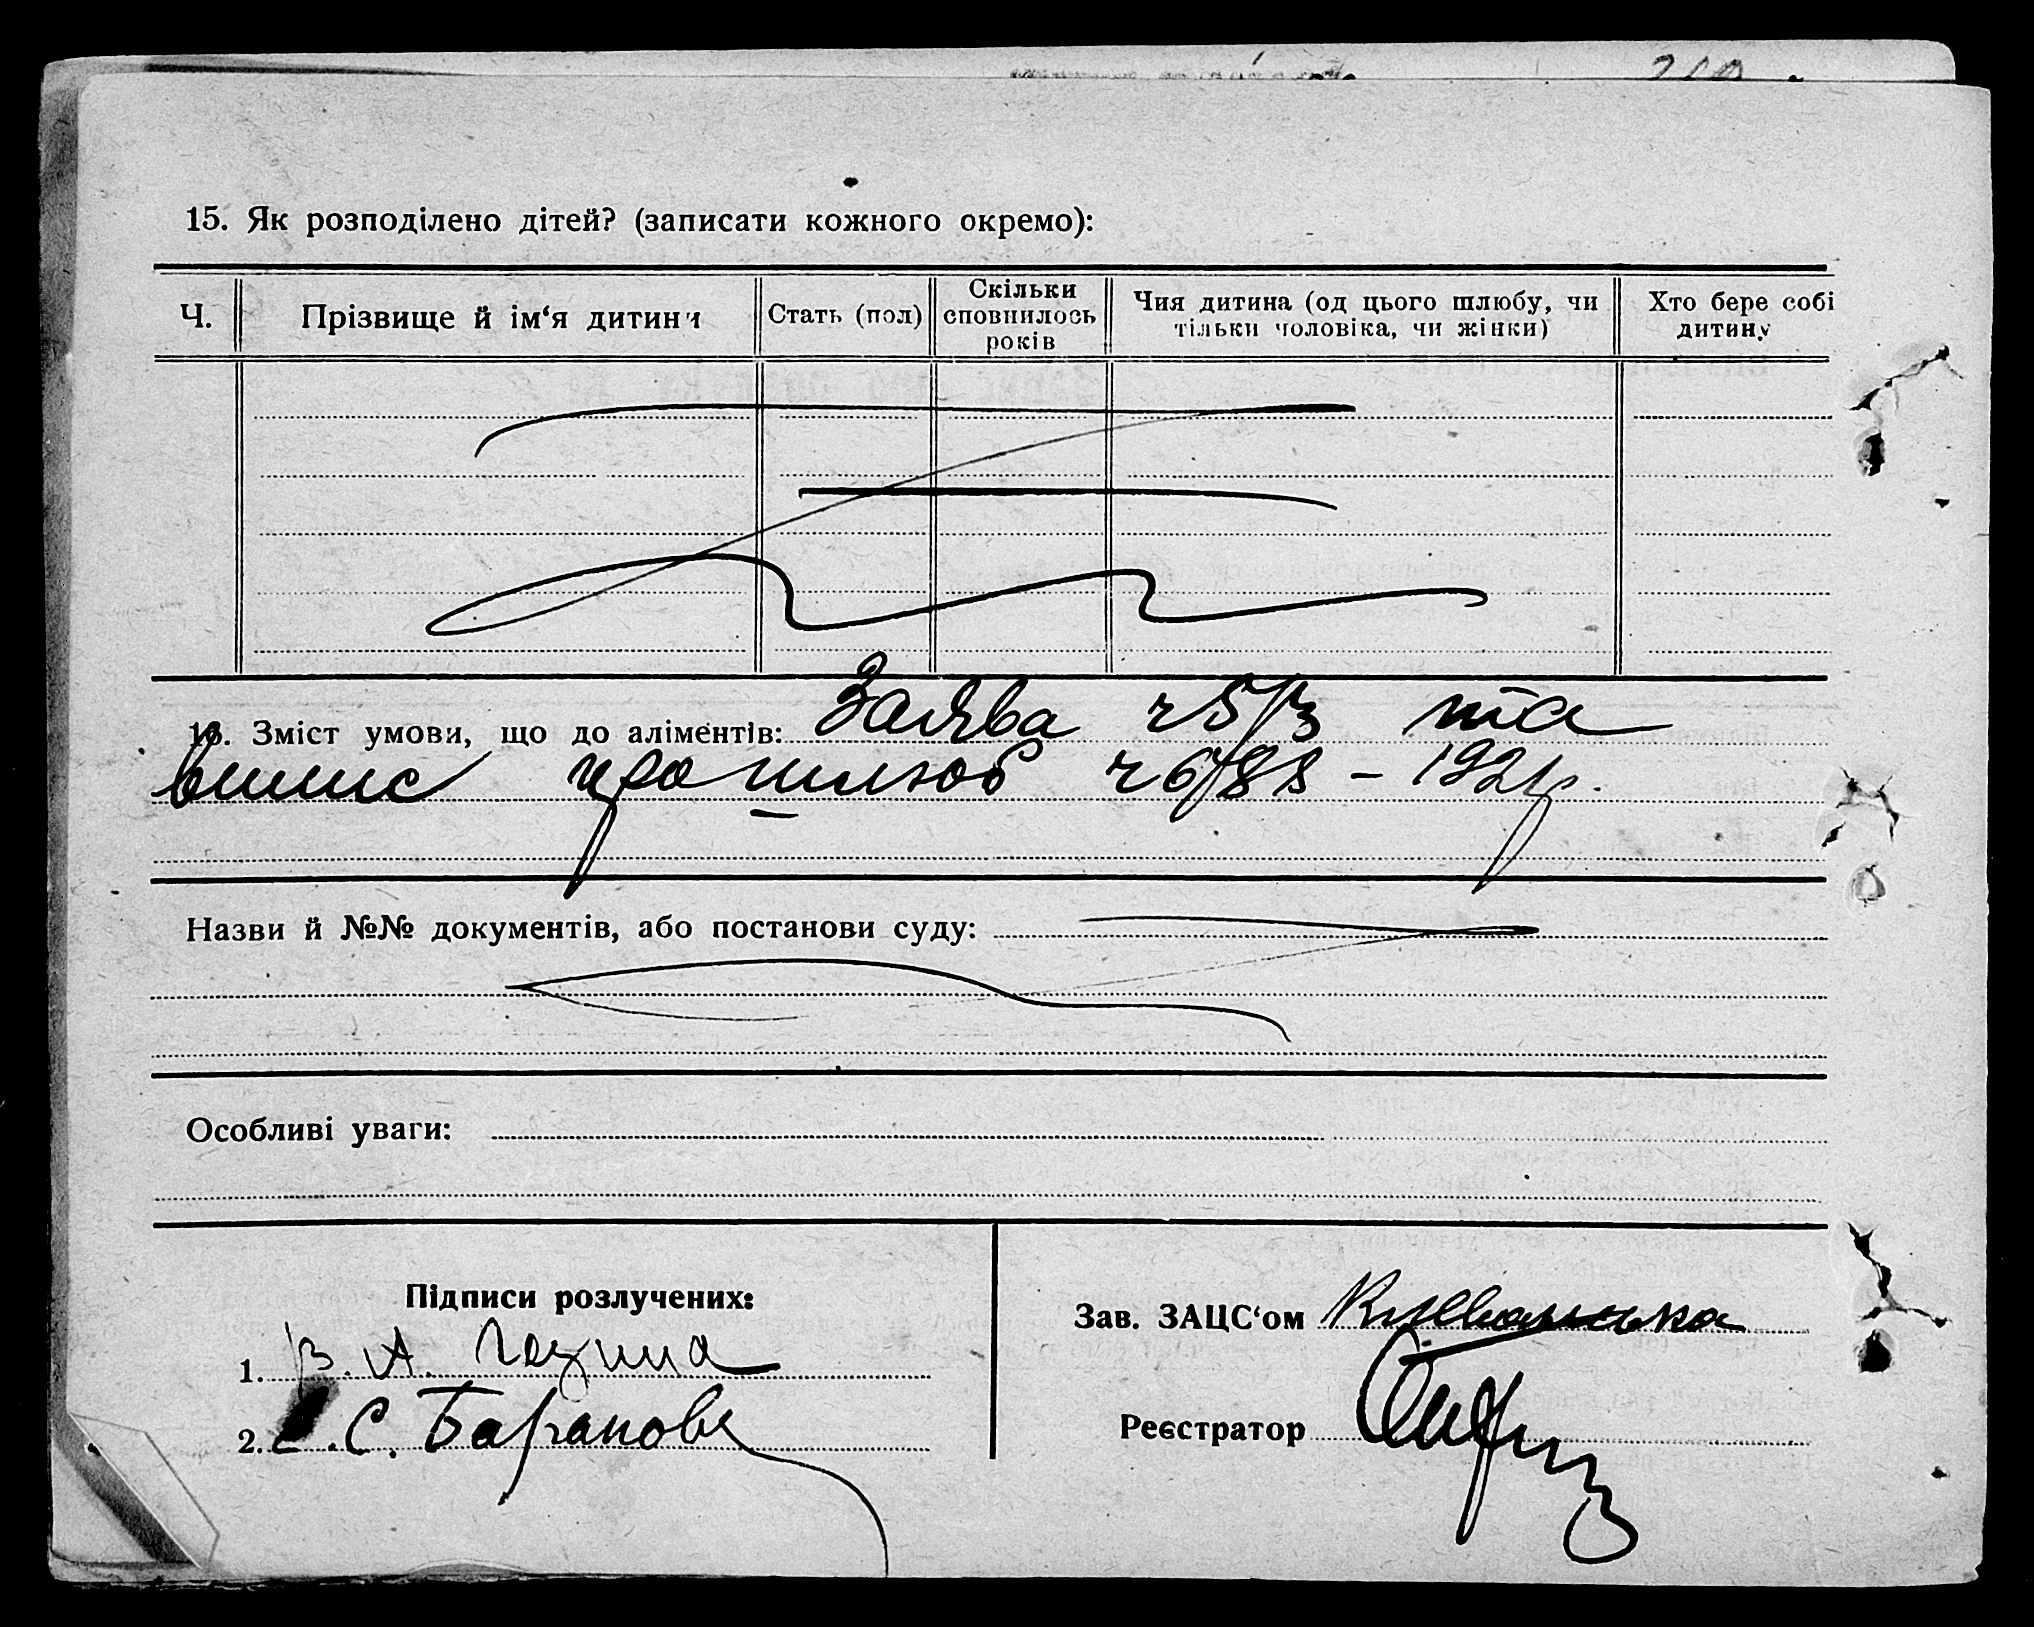 15. Як розподілено дітей? (записати кожного окремо):
Ч.
Прізвище й ім‘я дитини
Стать (пол)
Скільки
сповнилось
років
Чия дитина (од цього шлюбу, чи
тільки чоловіка, чи жінки)
Хто бере собі
дитину
16. Зміст умови, що до аліментів: Заява ч 5/3 та
випис про шлюб ч 6788 – 192 р.
Назви й №№ документів, або постанови суду:
Особливі уваги:
Підписи розлучених:
Зав. ЗАЦС‘ом
1. В. А.
2. С. Баранов
Реєстратор